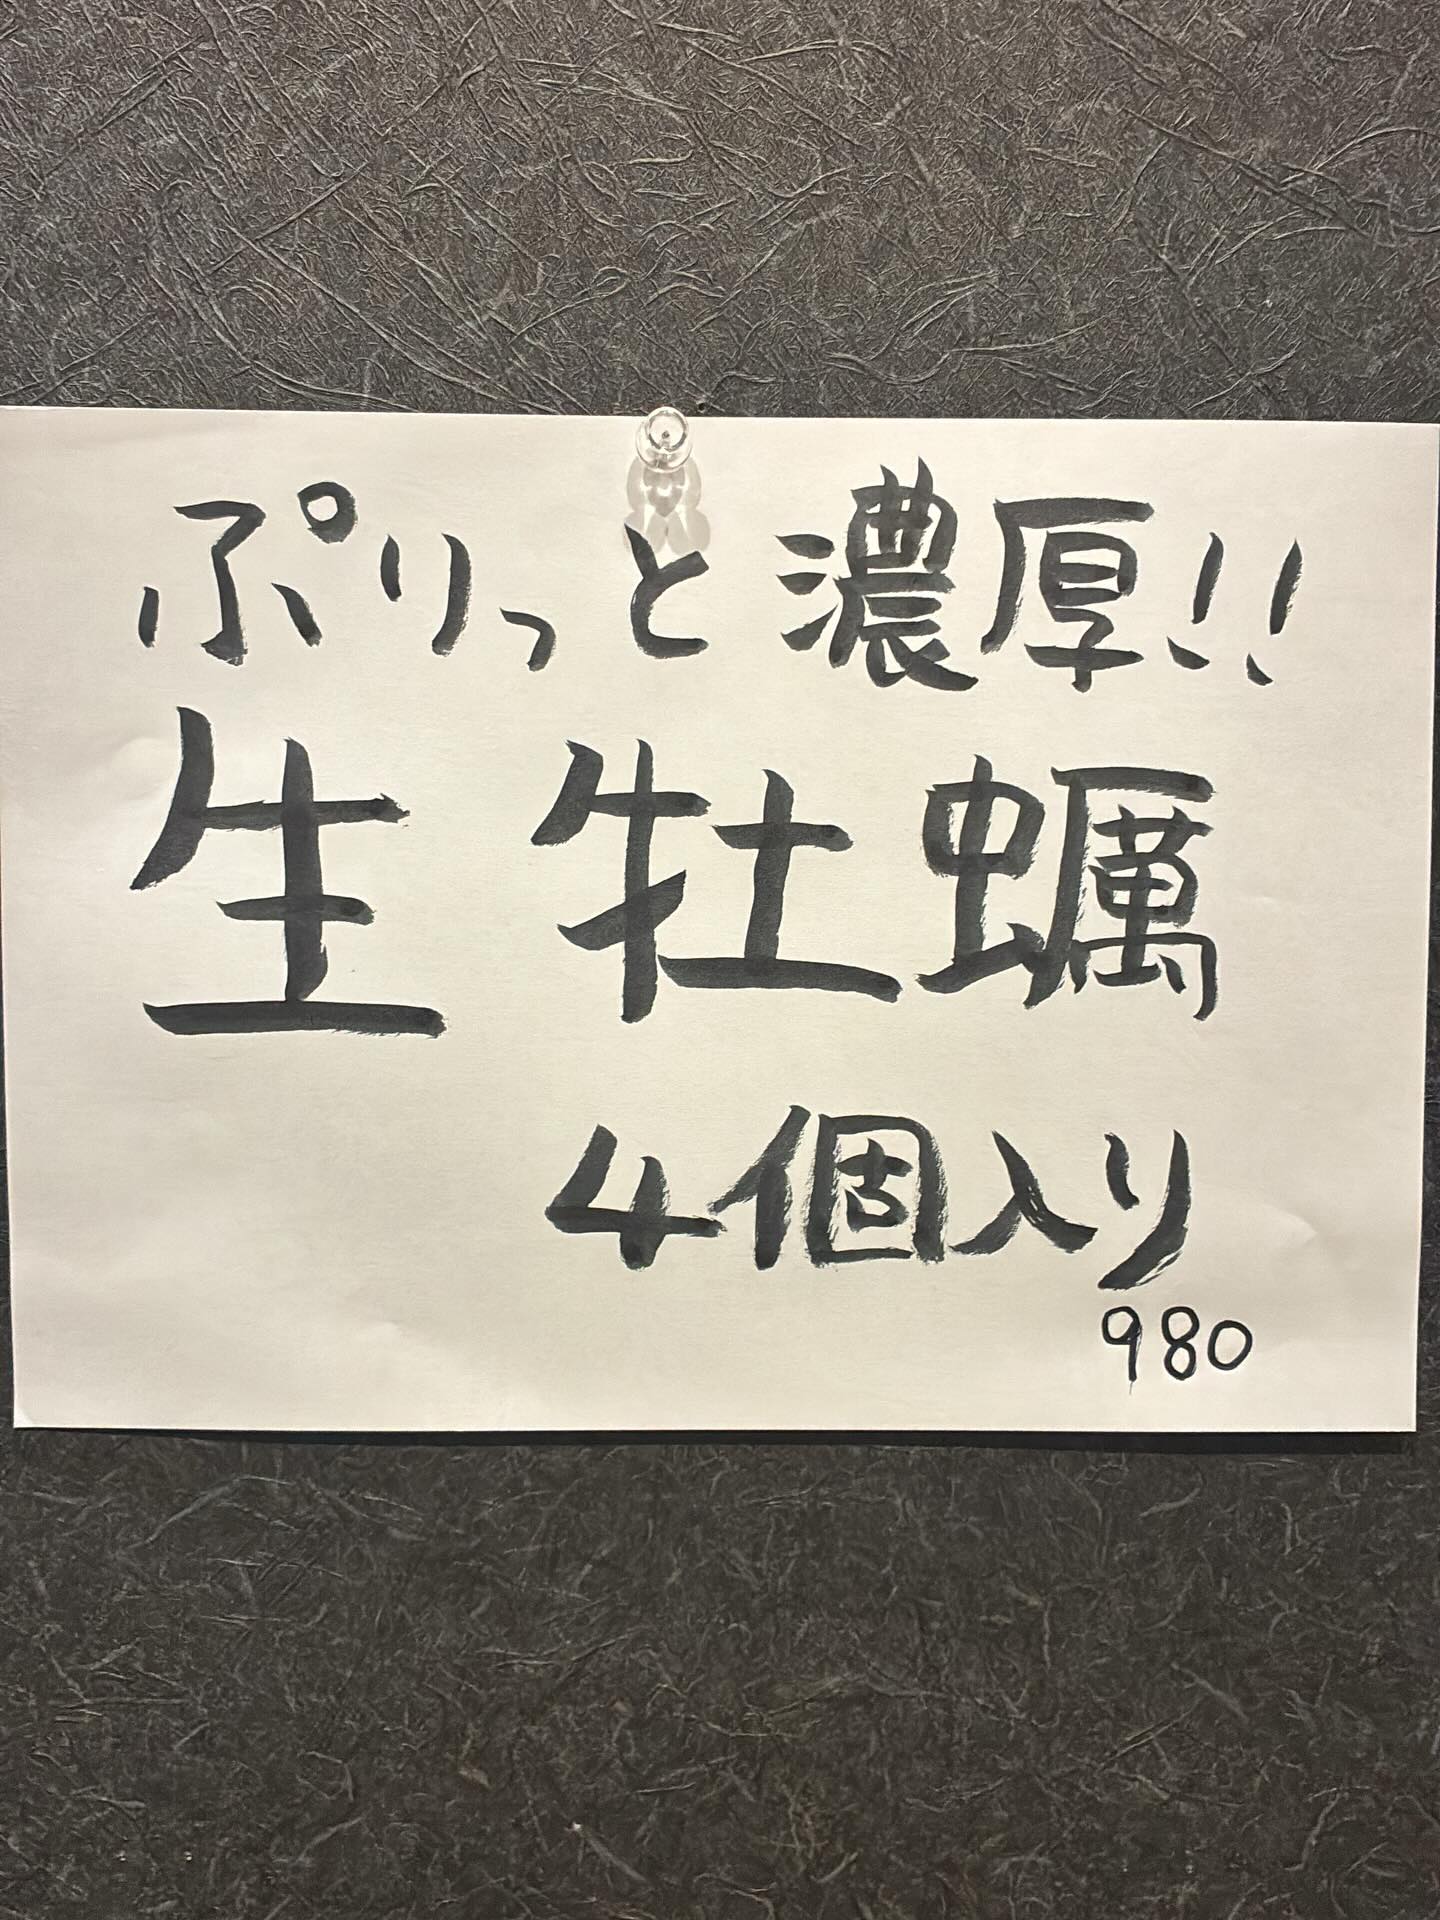 ぷりっと濃厚!!
生牡蠣
4個入り
980